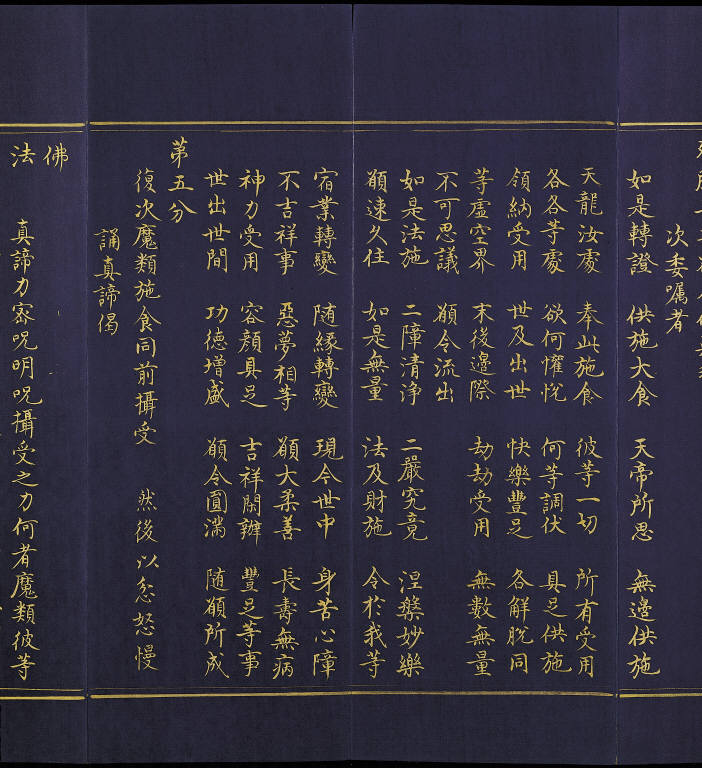 次委嘱者
如是轉證 供施大食 天帝所思 無邊供施
天龍汝處 奉此施食 彼等一切 所有受用
各各等處 欲何懽悅 何等調伏 具足供施
領納受用 世及出世 快樂豐足 各解脫同
等虛空界 末後邊際 劫劫受用 無數無量
不可思議 願令流出
如是法施 二障清淨 二嚴究竟 涅槃妙樂
願速久住 如是無量 法及財施 令於我等
宿業轉變 随緣轉變 現今世中 身苦心障
不吉祥事 惡夢相等 願大柔善 長壽無病
神力受用 容顏具足 吉祥閑辦 豐足等事
世出世間 功德增盛 願令圓滿 随願所成
第五分
復次魔類施食同前攝受 然後以忿怒慢
誦真諦偈
佛
法
真諦力密呪明呪攝受之力何者魔類彼等